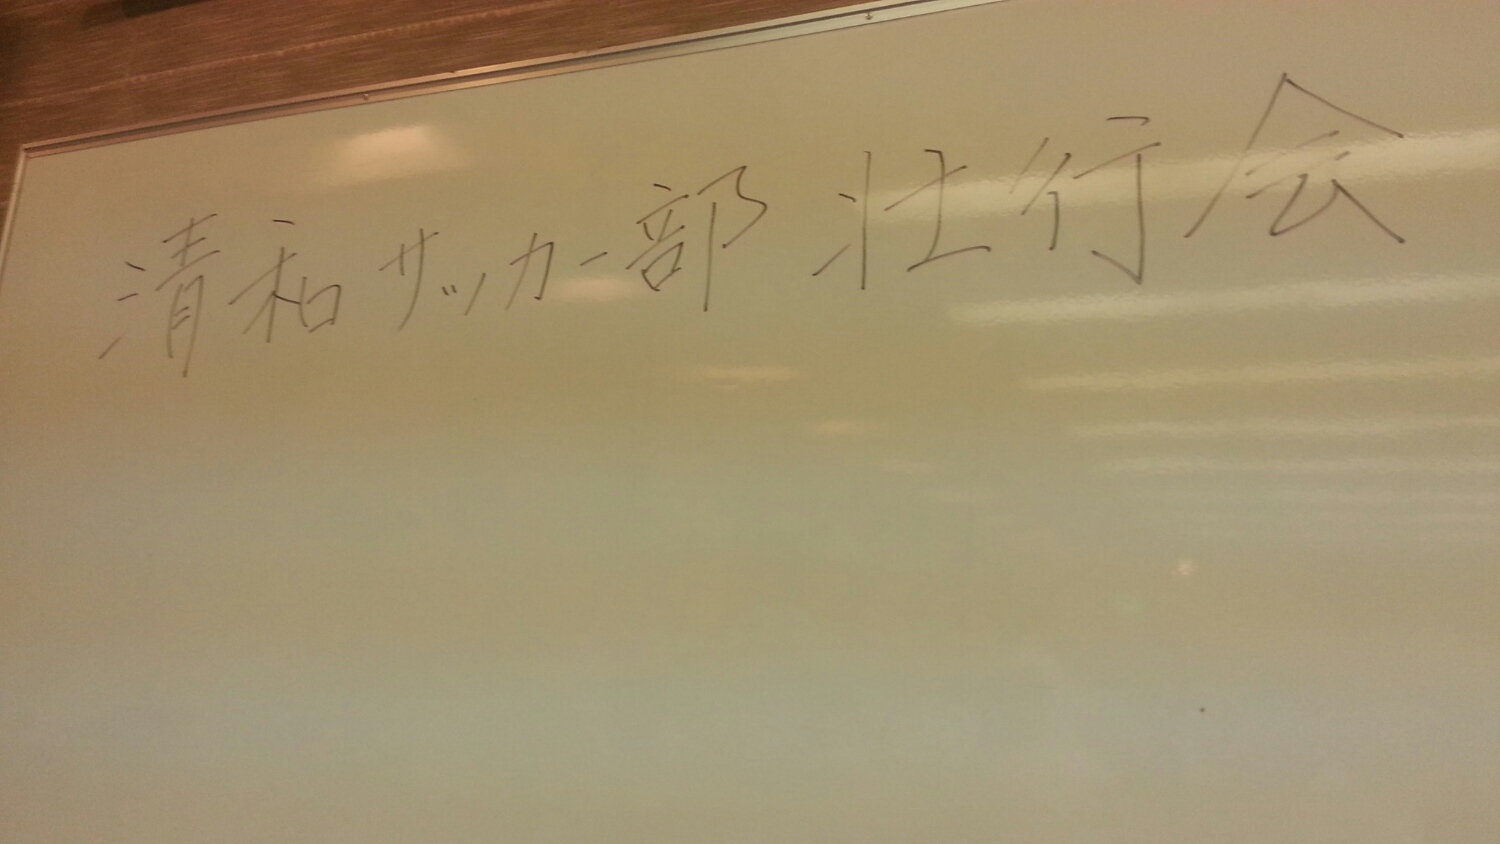 清和サッカー部 壮行会